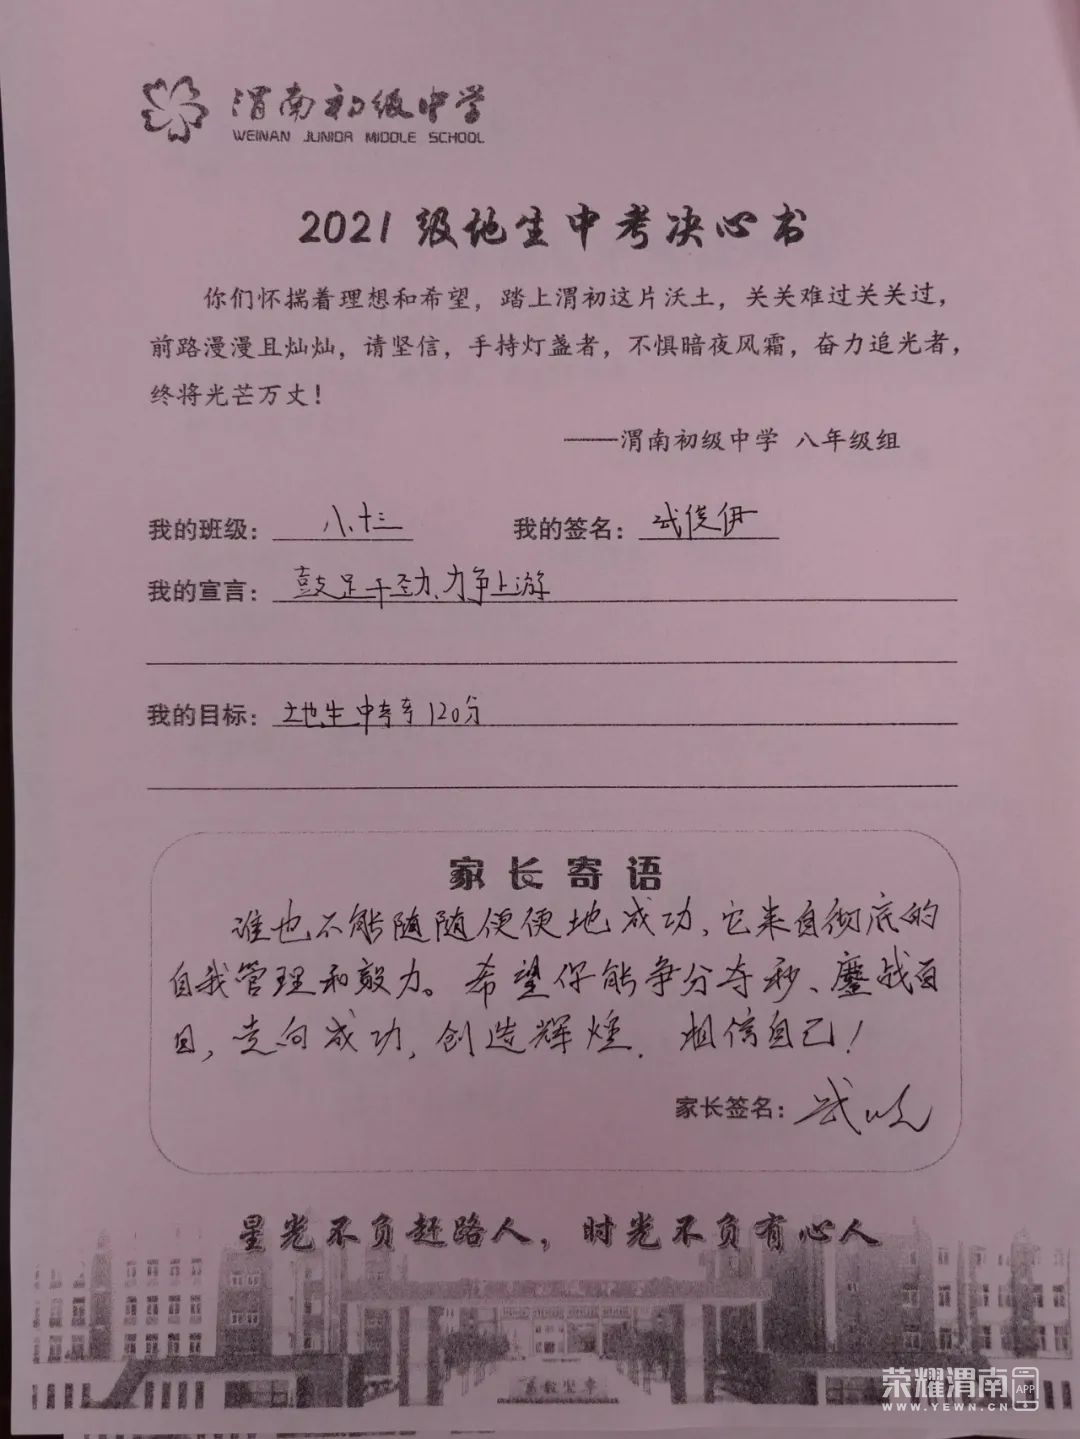 渭南初级中学
WEINAN JUNIOR MIDDLE SCHOOL
2021级地生中考决心书
你们怀揣着理想和希望，踏上渭初这片沃土，关关难过关关过，
前路漫漫且灿灿，请坚信，手持灯盏者，不惧暗夜风霜，奋力追光者，
终将光芒万丈！
——渭南初级中学 八年级组
我的班级：八、十三 我的签名：武俊伊
我的宣言：鼓足干劲、力争上游
我的目标：地生中考考120分
家长寄语
谁也不能随随便便地成功，它来自彻底的
自我管理和毅力。希望你能争分夺秒、鏖战百
日，走向成功，创造辉煌．相信自己！
家长签名：武
星光不负赶路人，时光不负有心人
荣耀渭南
APP
WWW.YEWN.CN